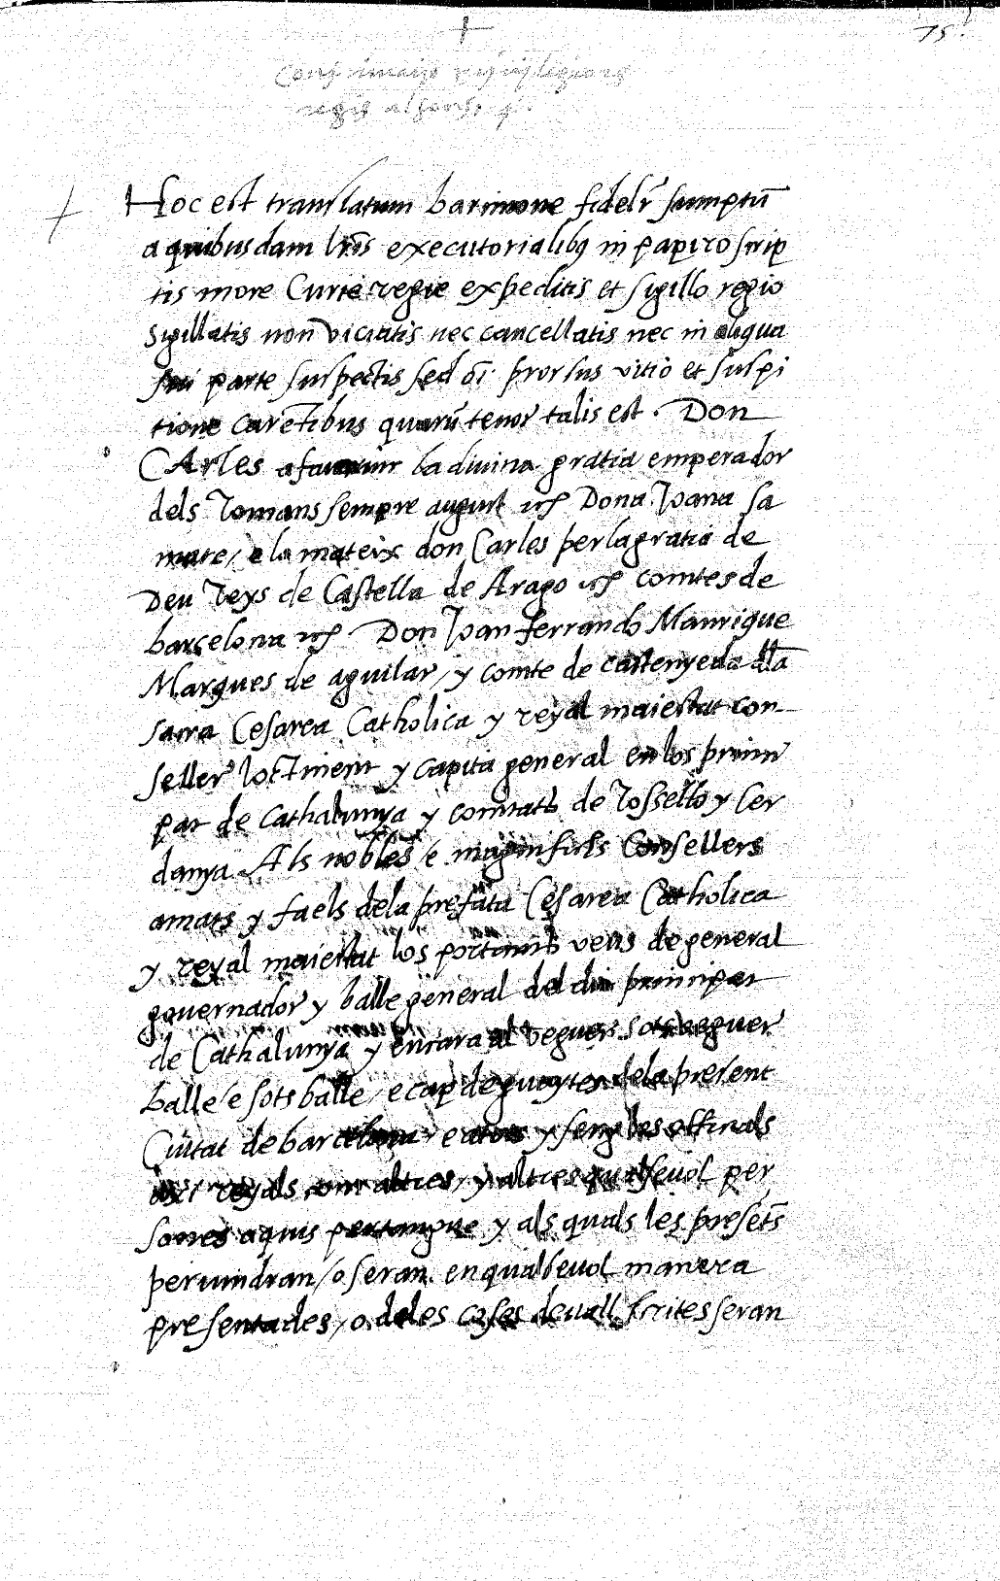 75.
regis alfonsi
Hoc est translatum barcinone fidelr̃ sumptũ
a quibusdam lrĩs executorialibȝ in papiro scrip
tis more Curie regie expeditis et sigillo regio
sigillatis non viciatis nec cancellatis nec in aliqua
sui parte suspectis sed oĩ prorsus vitio et suspi
tione carẽtibus quarũ tenor talis est . Don
CArles afavorint la divina gratia emperador
dels Romans sempre august Dona Joana sa
mare / e lo mateix don Carles per la gratia de
Deu Reys de Castella de Arago comtes de
barcelona Don Joan ferrando Manrique
Marques de aguilar / y comte de castenyeda dla
sacra Cesarea Catholica y reyal maiestat con-
seller loctinent y capita general en los princi
pat de Cathalunya y comtats de Rossello y Cer
danya . Als nobles e magnifichs Consellers
amats y faels de la prefata Cesarea Catholica
y reyal maiestat los portants veus de general
governador y balle general del dit principat
de Cathalunya y encara al veguer sotsveguer
balle / e sots balle / e cap de guaytes de la present
Ciutat de barcelona e a tots y sengles officials
axi reyals com altres / y altres qualsevol per
sones a quis pertangue y als quals les presẽts
pervindran / o seran en qualsevol manera
presentades / o de les coses devall scrites seran